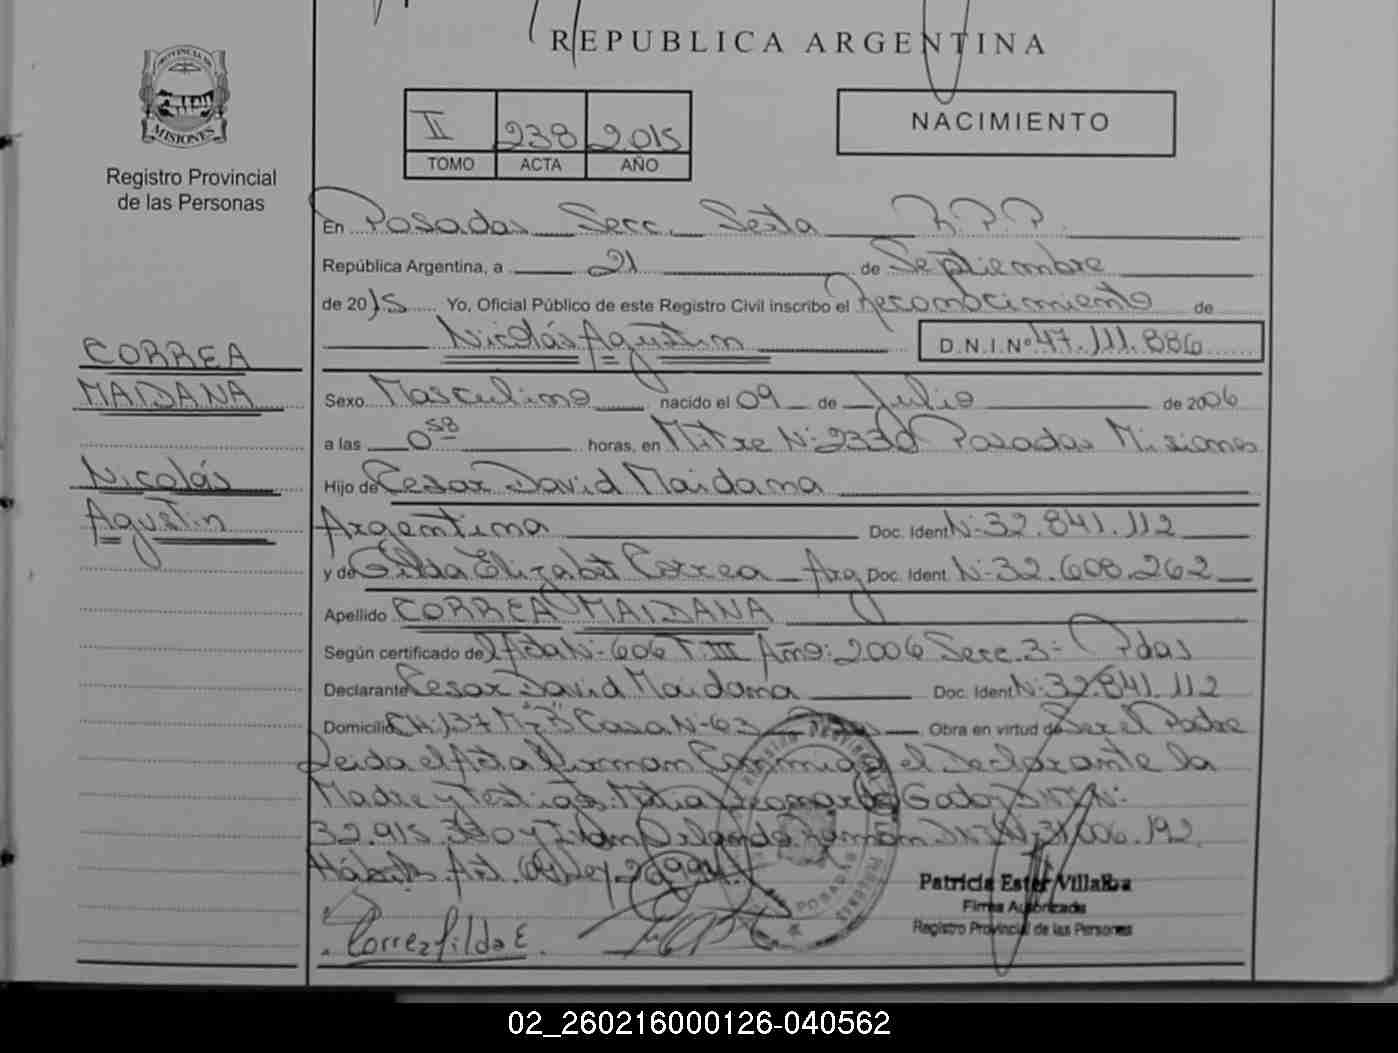 REPUBLICA ARGENTINA
PROVINCIA DE
MISIONES
Registro Provincial
de las Personas
II 238 2015
TOMO ACTA AÑO
NACIMIENTO
En Posadas Secc. Sexta R.P.P.
República Argentina, a 21 de Septiembre
de 2015 Yo, Oficial Público de este Registro Civil inscribo el Reconocimiento de
Nicolás Agustin D.N.I.Nº 47.111.886
CORREA
MAIDANA
Nicolás
Agustin
Sexo Masculino nacido el 09 de Julio de 2006
a las 0 58 horas, en Mitre N: 2330 Posadas Misiones
Hijo de Cesar David Maidana
Argentina Doc. Ident N- 32.841.112
y de Gilda Elizabet Correa Arg Doc. Ident N- 32.608.262
Apellido CORREA MAIDANA
Según certificado de Acta N- 606 T. III Año: 2006 Secc. 3- Pdas
Declarante Cesar David Maidana Doc. Ident N: 32.841.112
Domicilio CH. 137 Mz "B" Casa N- 63 Obra en virtud de Ser el Padre
Leida el Acta Firman Conmigo el Declarante la
Madre y Testigos: Godoy DNI N:
32.915.330 y Ramon DNI N: 31.006.192
Art. Ley 26994.
Correa Gilda E.
Patricia Ester Villalba
Firma Autorizada
Registro Provincial de las Personas
02_260216000126-040562